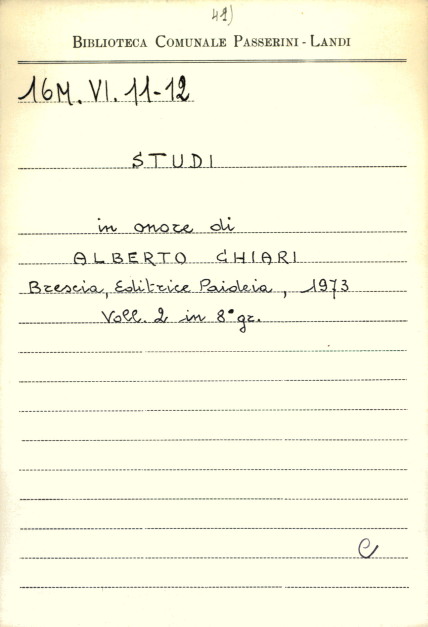 49)
BIBLIOTECA COMUNALE PASSERINI - LANDI
16M. VI. 11-12
STUDI
in onore di
ALBERTO CHIARI
Brescia, Editrice Paideia, 1973
Voll. 2 in 8° gr.
C